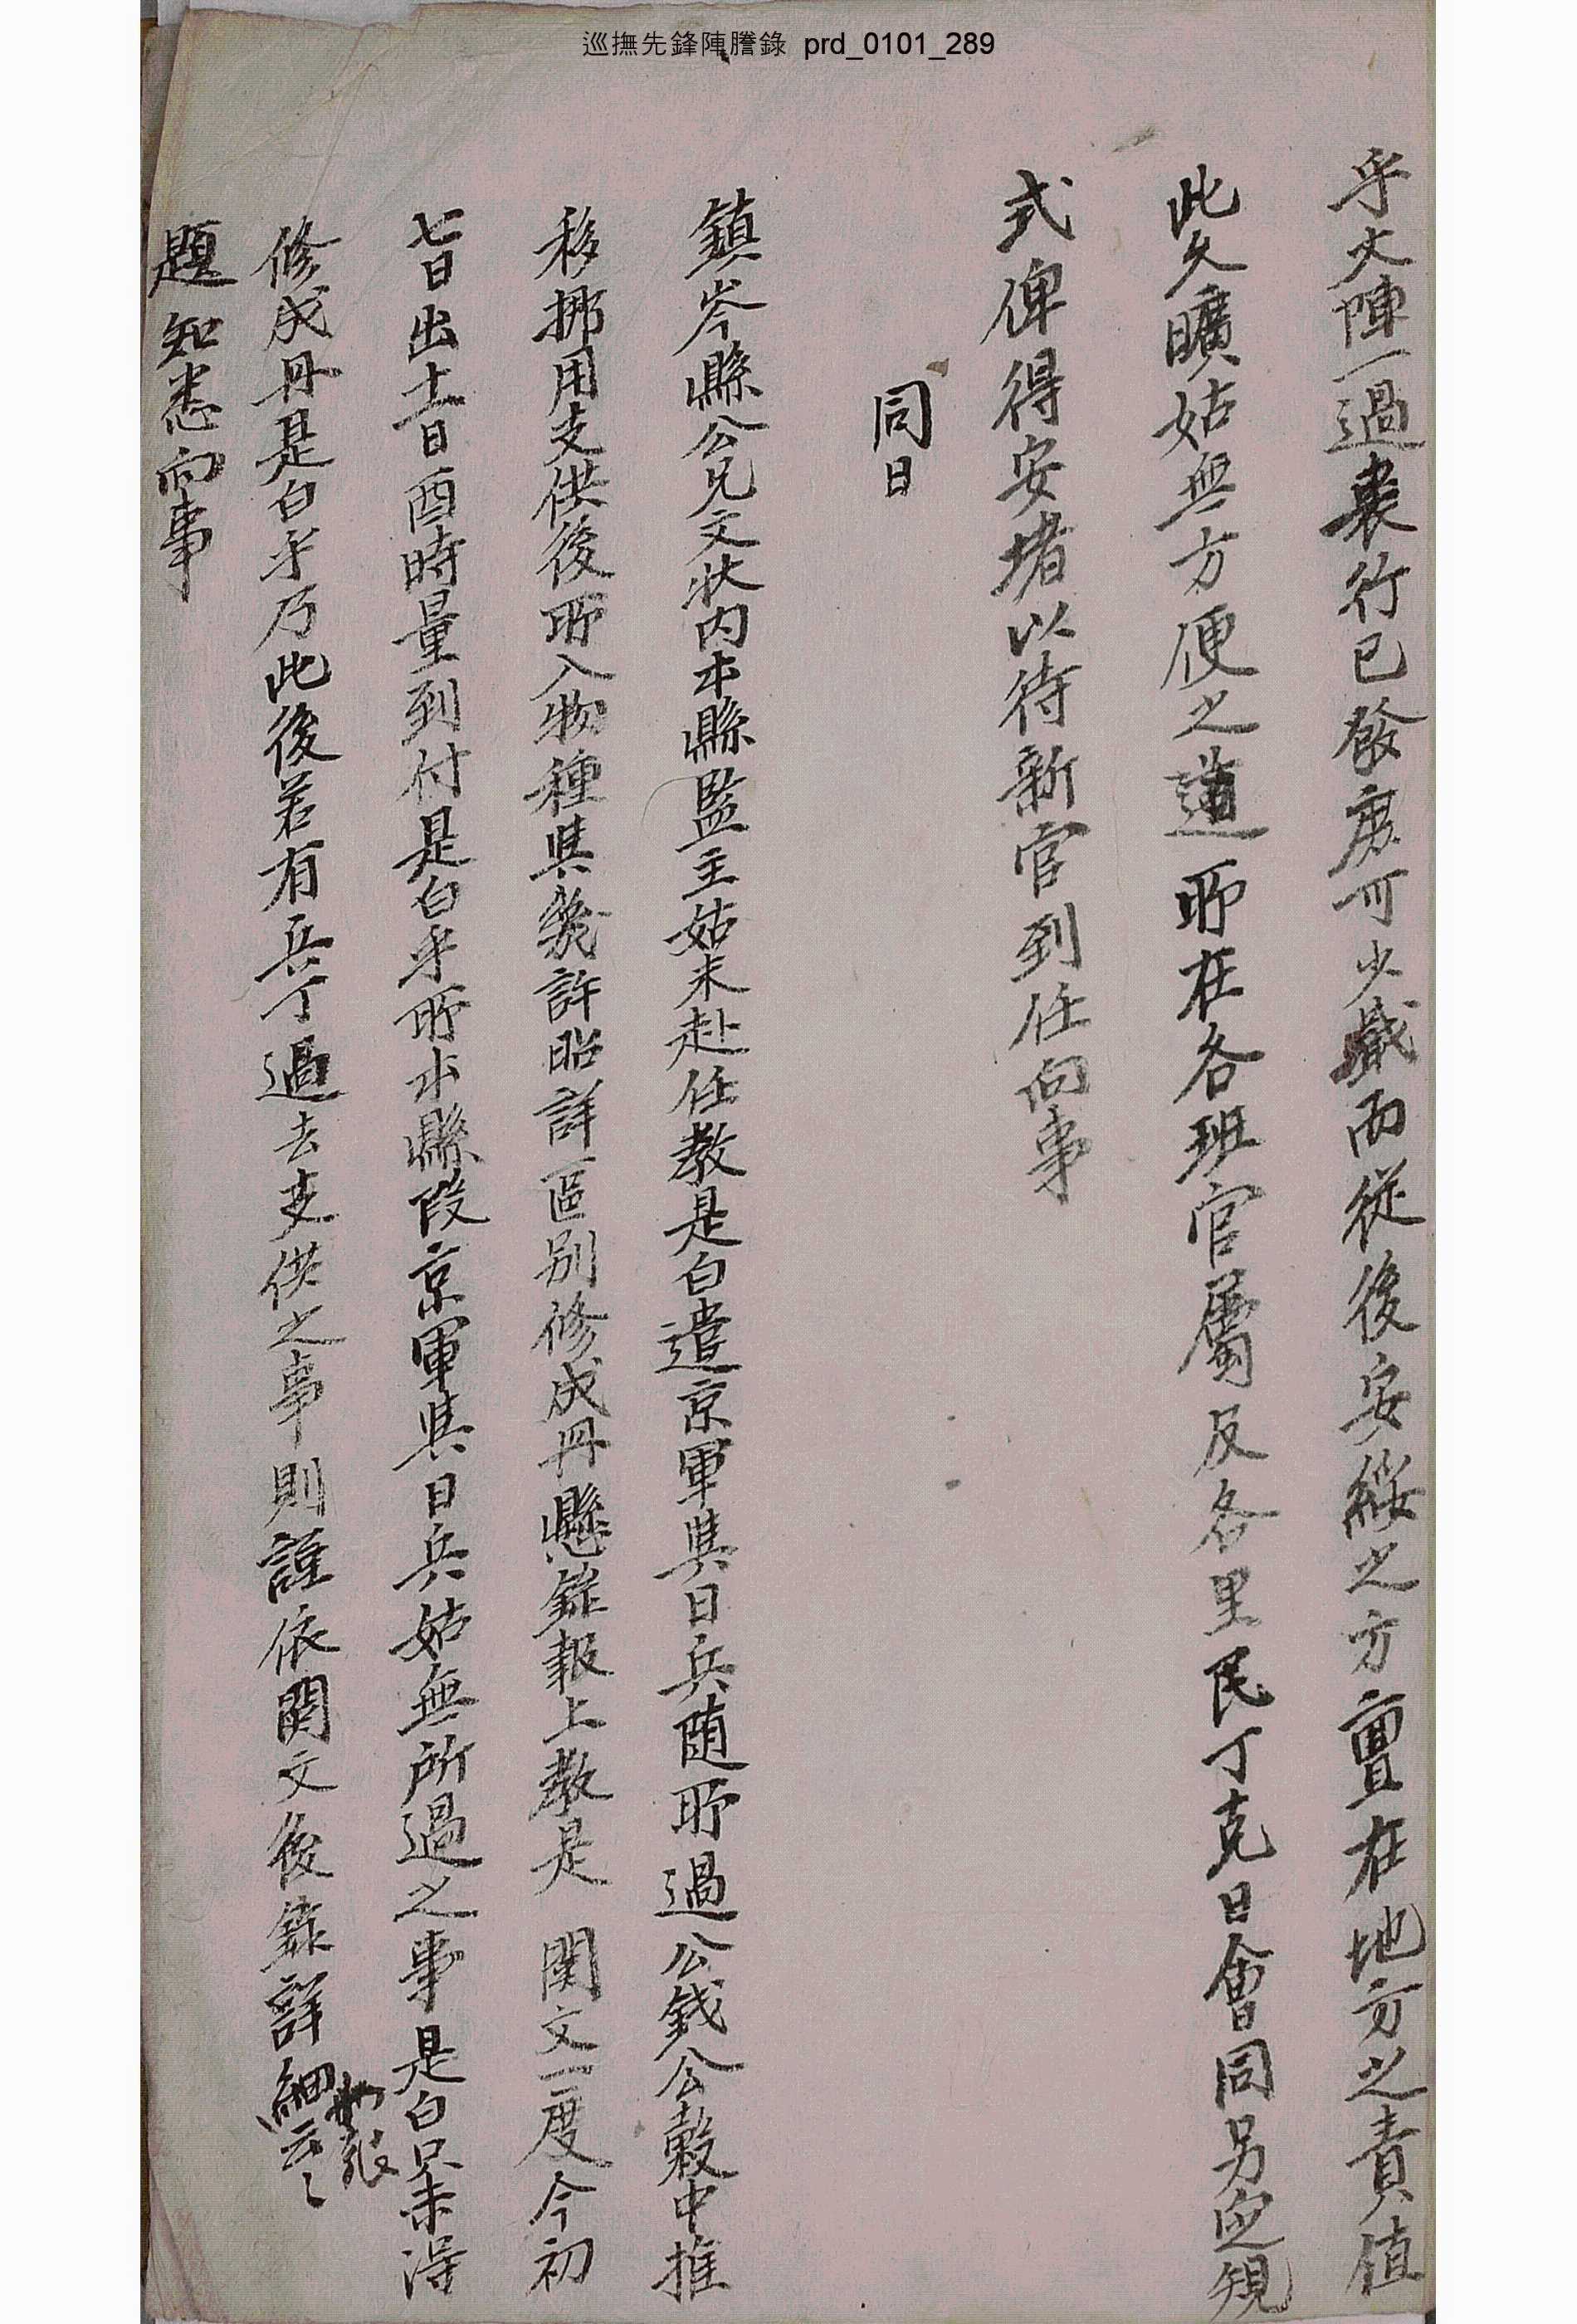 巡撫先鋒陣謄錄 prd_0101_289
乎大陣一過衰行已發庶可少戢而從後安綏之方亶在地方之責値
此久曠姑無方便之道所在各班官屬及各里民丁克日會同另定規
式俾得安堵以待新官到任向事
同日
鎮岑縣公兄文狀內本縣監主姑未赴任敎是白遣京軍與日兵随所過公錢公穀中推
移挪用支供後所入物種與幾許昭詳區別修成冊懸錄報上敎是 関文一度今初
七日出十一日酉時量到付是白乎所本縣段京軍與日兵姑無所過之事是白只未得
修成冊是白乎乃此後若有兵丁過去支供之事則謹依関文後錄詳細云云
題知悉向事